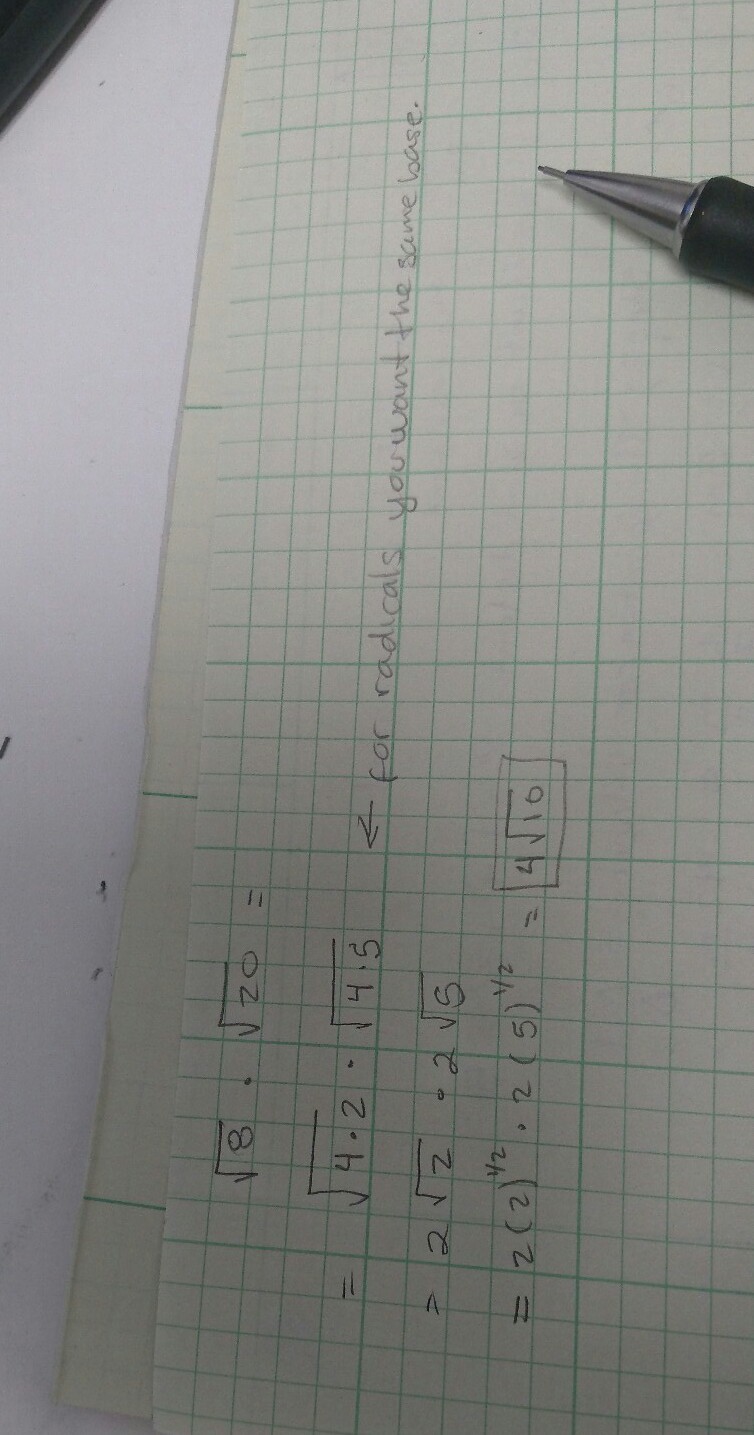 √8 · √20 =
= √4·2 · √4·5 ← for radicals you want the same base.
= 2√2 · 2√5
= 2(2)^1/2 · 2(5)^1/2 = 4√10